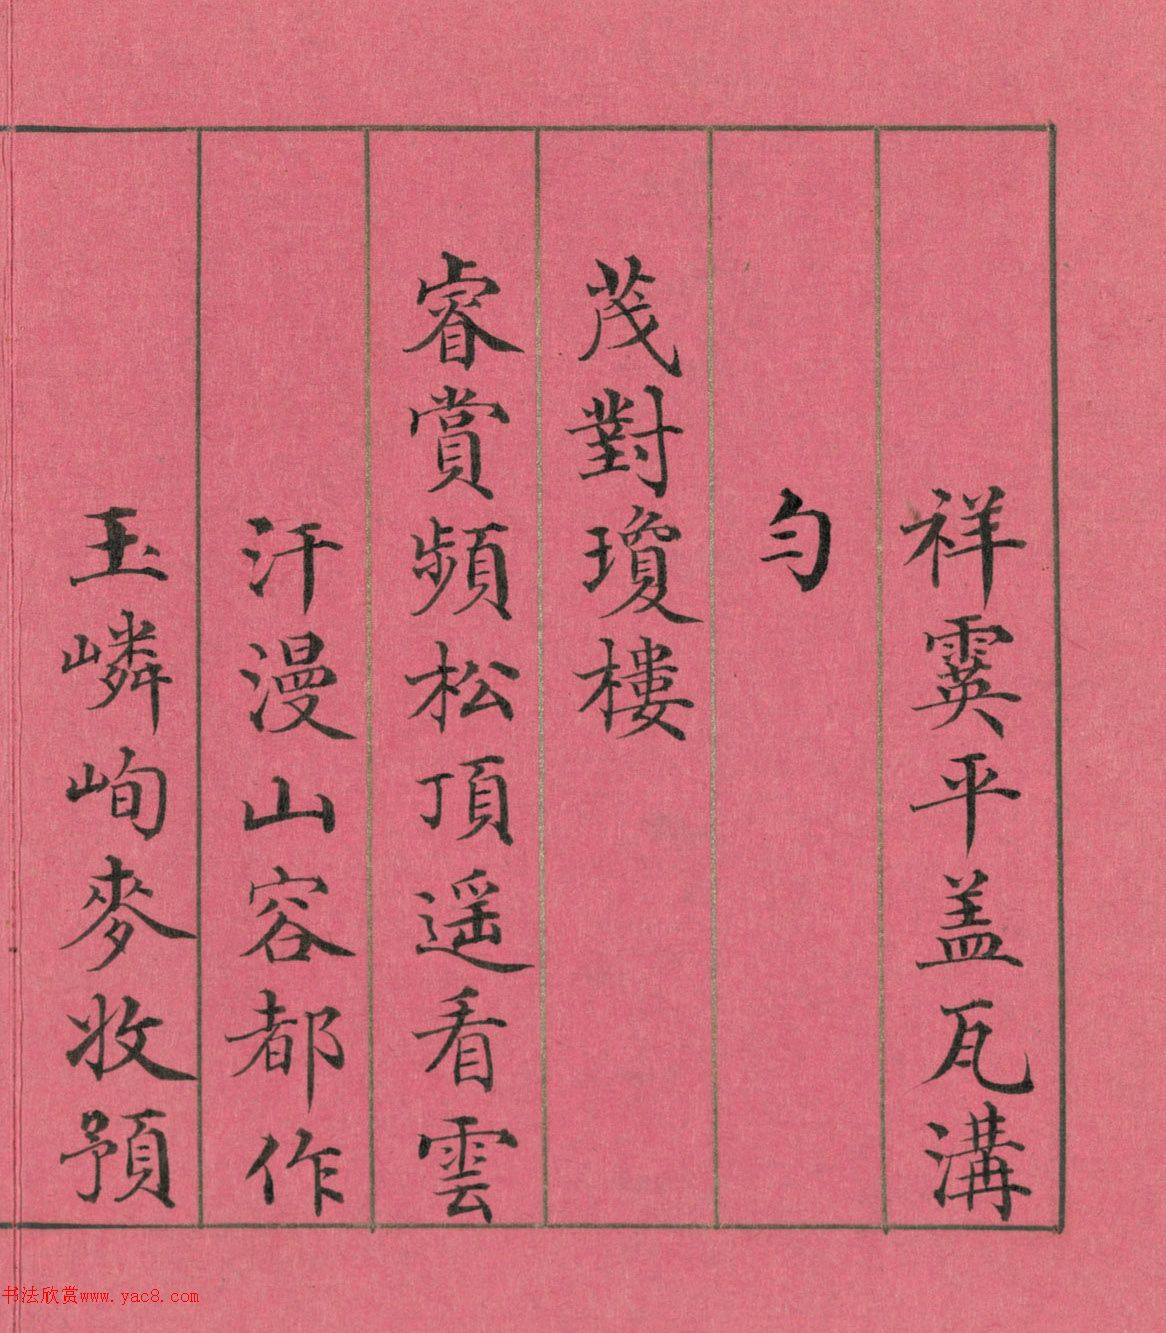 祥霙平盖瓦溝
勻
茂對瓊樓
睿賞頻松頂遥看雲
汗漫山容都作
玉嶙峋麥收預
书法欣赏www.yac8.com